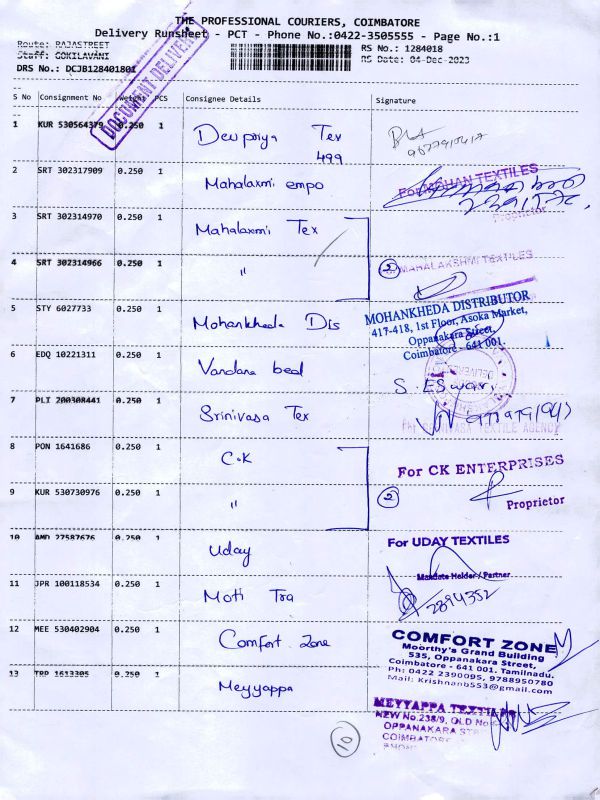 THE PROFESSIONAL COURIERS, COIMBATORE
Delivery Runsheet - PCT - Phone No.:0422-3505555 - Page No.:1
Route: RAJASTREET
RS No.: 1284018
Staff: GOKILAVANI
RS Date: 04-Dec-2023
DRS No.: DCJB128401801
DOCUMENT DELIVERY
S No Consignment No Weight PCS Consignee Details Signature
1 KUR 530564379 0.250 1 Devpriya Tex
499
2 SRT 302317909 0.250 1 Mahalaxmi empo
For MOHAN TEXTILES
Proprietor
3 SRT 302314970 0.250 1 Mahalaxmi Tex
4 SRT 302314966 0.250 1 "
2 MAHALAKSHMI TEXTILES
5 STY 6027733 0.250 1 Mohankheda Dis
MOHANKHEDA DISTRIBUTOR
417-418, 1st Floor, Asoka Market,
Oppanakara Street,
Coimbatore - 641 001.
6 EDQ 10221311 0.250 1 Vandana bead
S. ESwari
7 PLI 200308441 0.250 1 Srinivasa Tex
TEXTILE AGENCY
8 PON 1641686 0.250 1 C.K
For CK ENTERPRISES
9 KUR 530730976 0.250 1 "
2
Proprietor
10 AMD 27587676 0.250 1 Uday
For UDAY TEXTILES
Mandate Holder / Partner
11 JPR 100118534 0.250 1 Moti Tra
2894352
12 MEE 530402904 0.250 1 Comfort Zone
COMFORT ZONE
Moorthy's Grand Building
535, Oppanakara Street,
Coimbatore - 641 001. Tamilnadu.
Ph: 0422 2390095, 9788950780
Mail: Krishnanb553@gmail.com
13 TRP 1613305 0.250 1 Meyyappa
MEYYAPPA TEXTILES
NEW No.238/9, OLD No
OPPANAKARA STR
COIMBATORE
PHONE
10